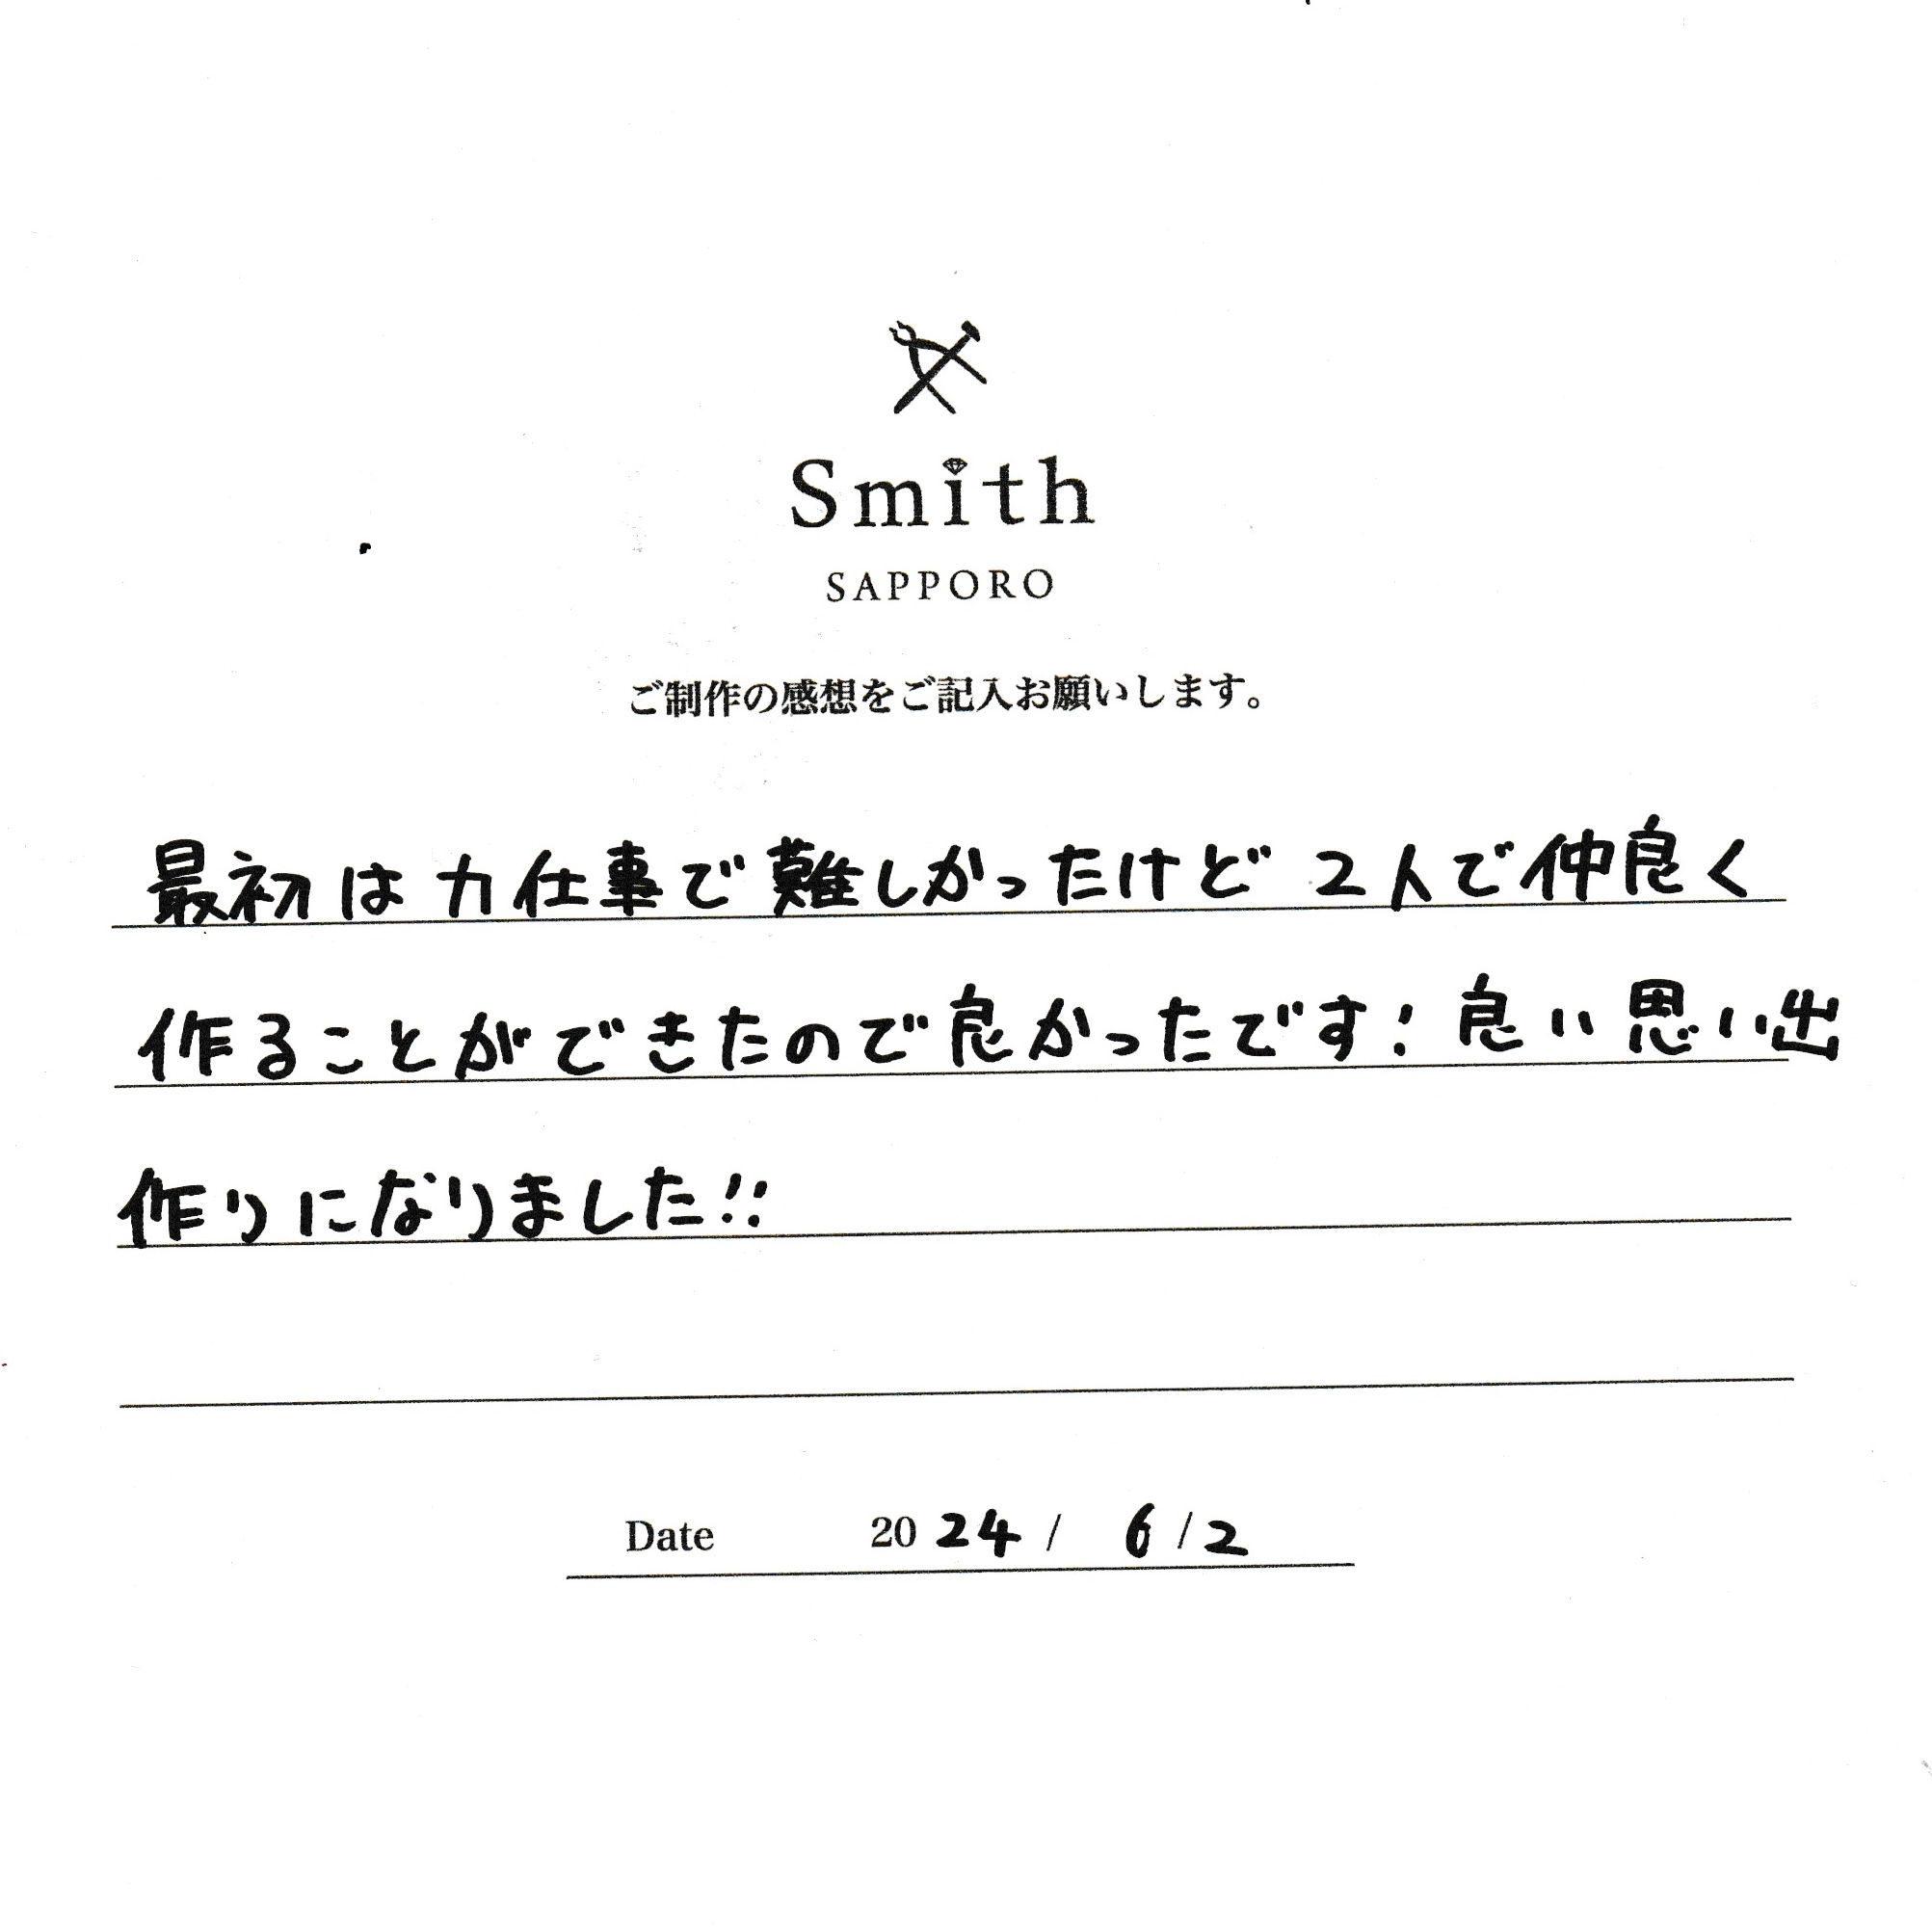 Smith
SAPPORO
ご制作の感想をご記入お願いします。
最初は力仕事で難しかったけど2人で仲良く
作ることができたので良かったです!良い思い出
作りになりました!!
Date 2024/ 6/2